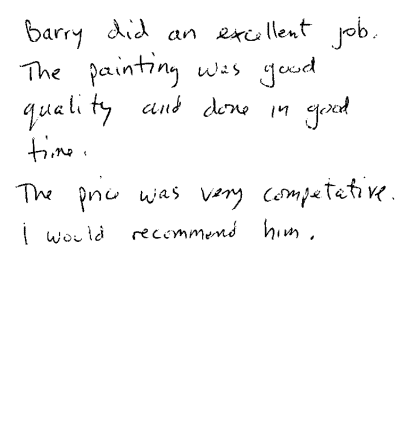 Barry did an excellent job.
The painting was good
quality and done in good
time.
The price was very competative.
I would recommend him.